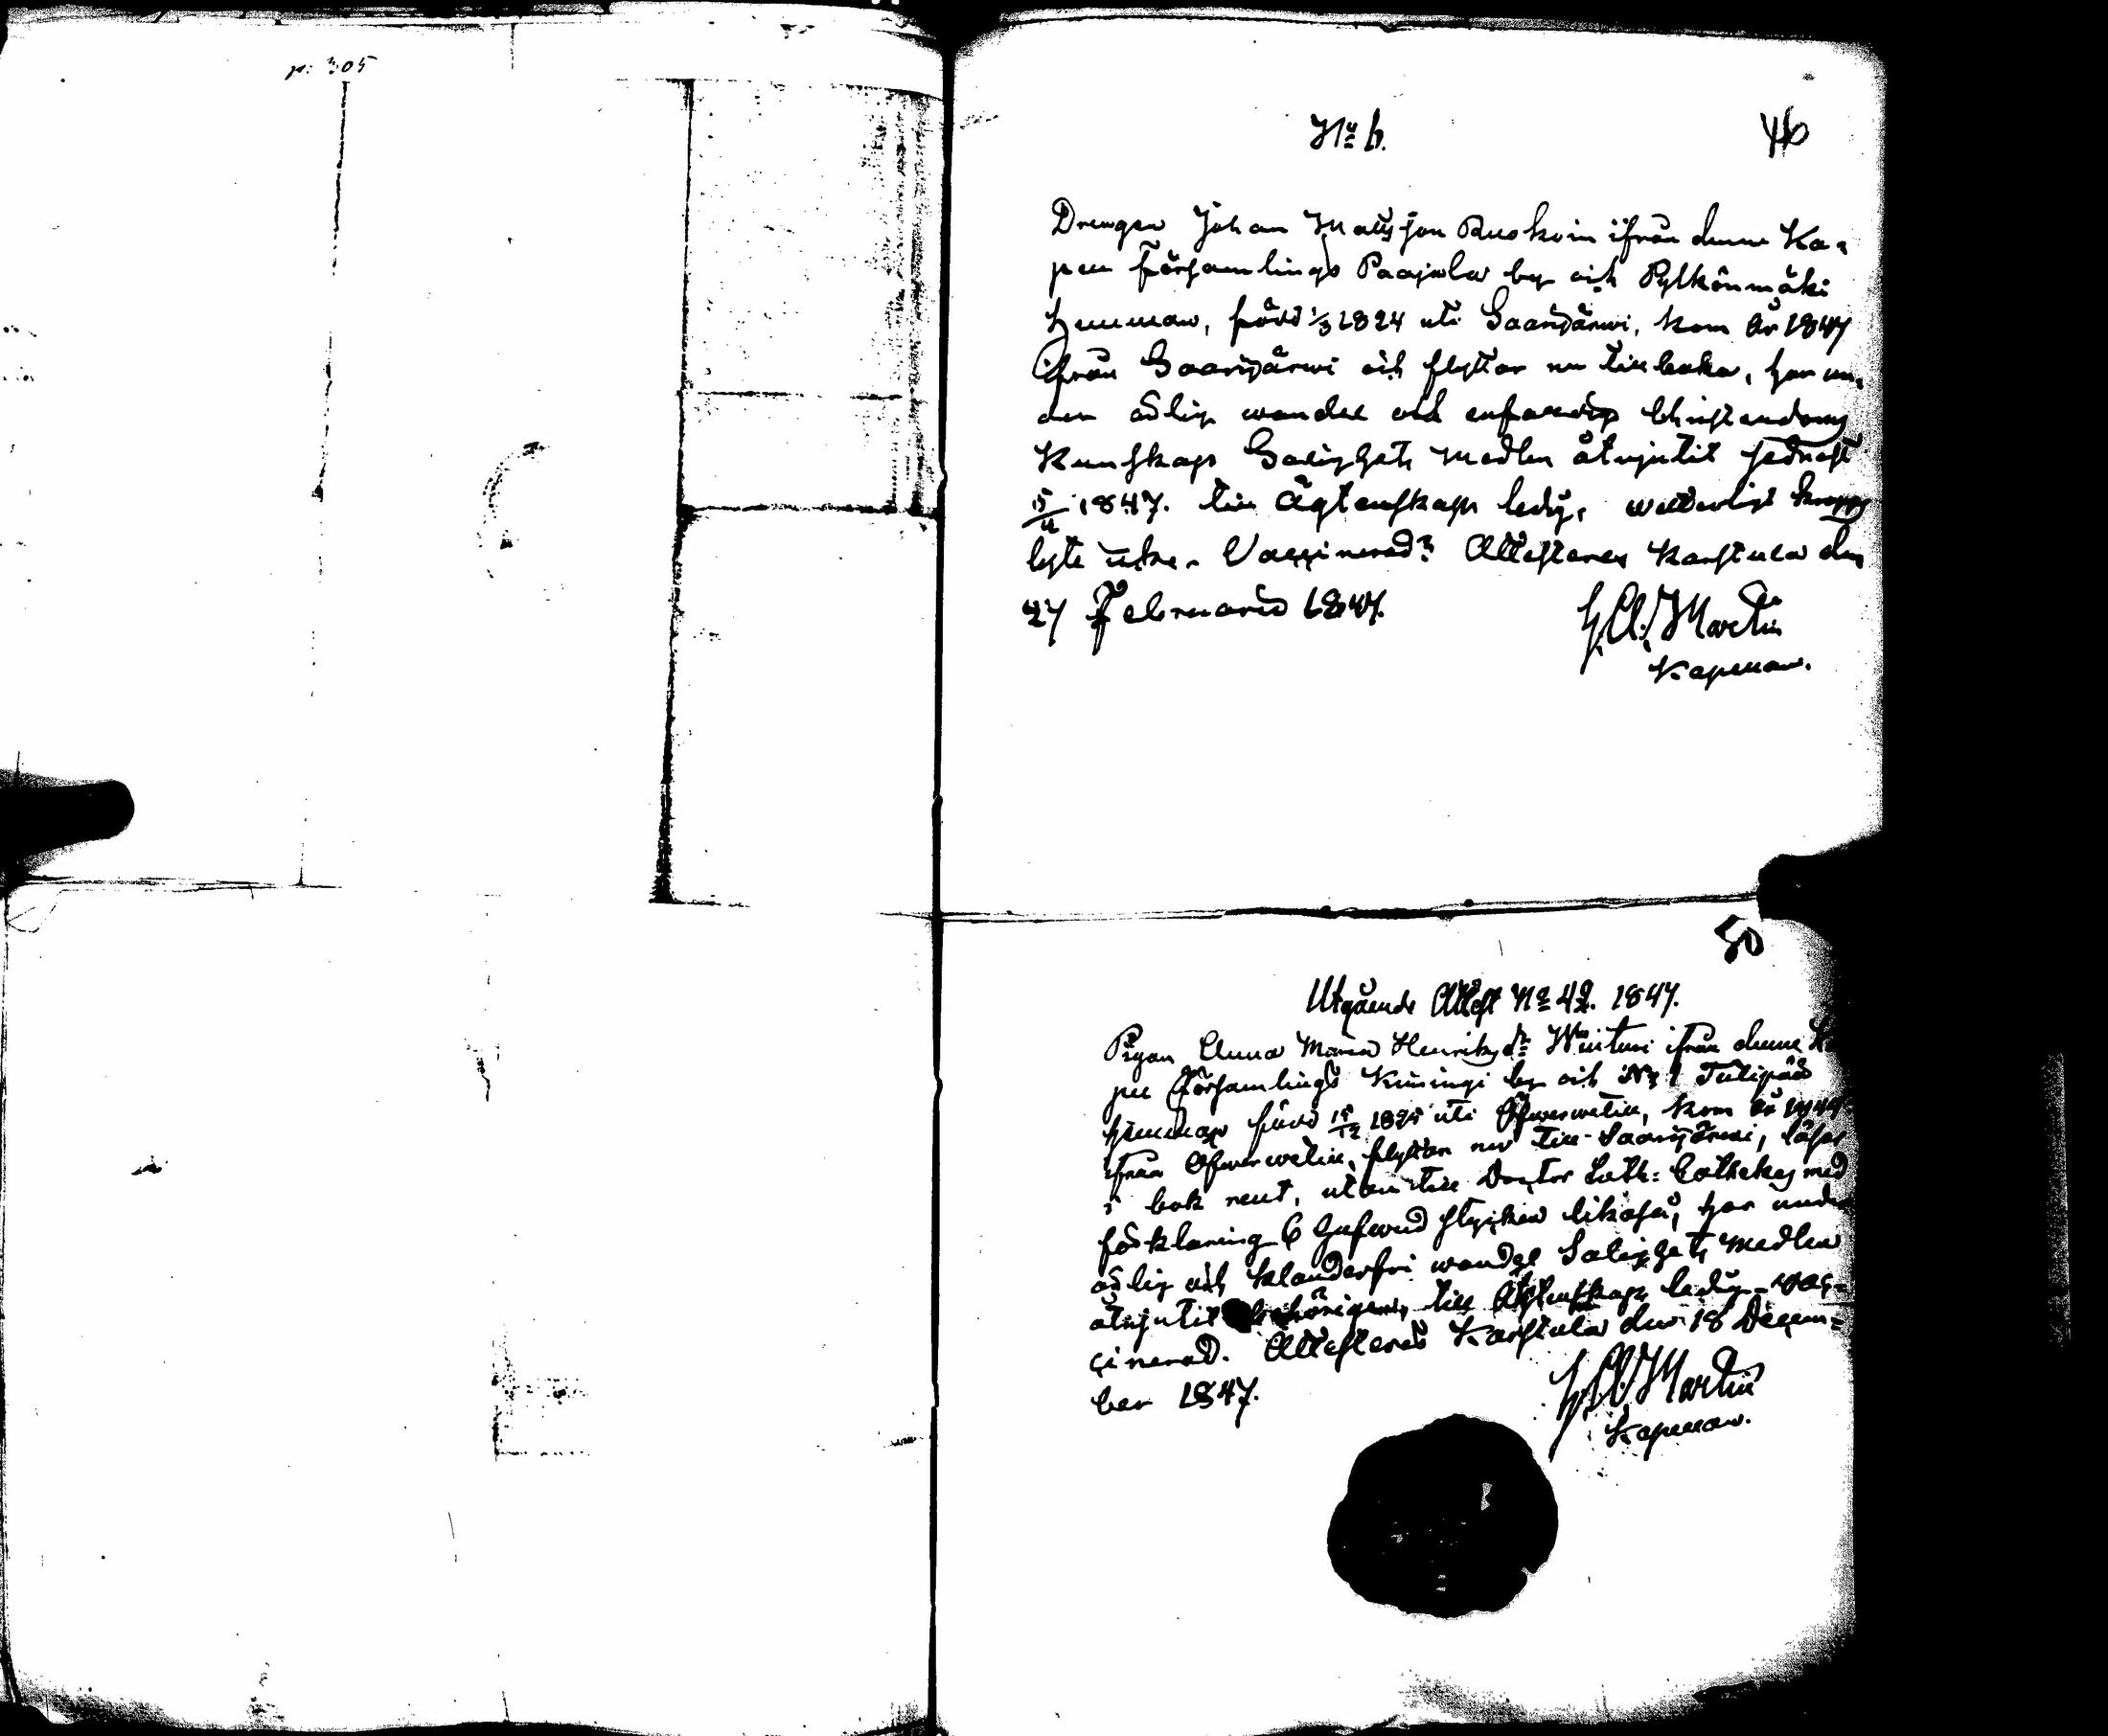 p: 305
No 6.
46
Drengen Johan Mattsson Ruskoin ifrån denne Ka-
pell Församlings Paajala by och Pylkönmäki
hemman, född 1/3 1824 uti Saarijärwi, kom år 1847
ifrån Saarijärwi och flyttar nu tillbaka, har un-
der ärlig wandel och enfaldig Christendoms
Kunskap Salighets medlen åtnjutit sednast
1847. till Ägtenskap ledig, wetterligt kropps
lyte icke. Vaccinerad? Attesteras Karstula den
27 Februarii 1847.
H. A. Martin
Kapellan.
50
Utgående Attest No 42. 1847.
Pigan Anna Maria Henriksdr ifrån denne Ka
pell Församlings Kimingi by och No 1 Tulipää
hemman född 15/12 uti Öfwerwetill, kom år
ifrån Öfwerwetill, flyttar nu till Saarijärwi, läser
i bok rent, utan till Doctor Luth: Cathekes med
förklaring 6 hufwud stycken likaså, har under
ärlig och klanderfri wandel Salighets medlen
åtnjutit behörigen, till Ägtenskap ledig - vac-
cinerad. Attesteras Karstula den 18 Decem-
ber 1847.
H. A. Martin
Kapellan.